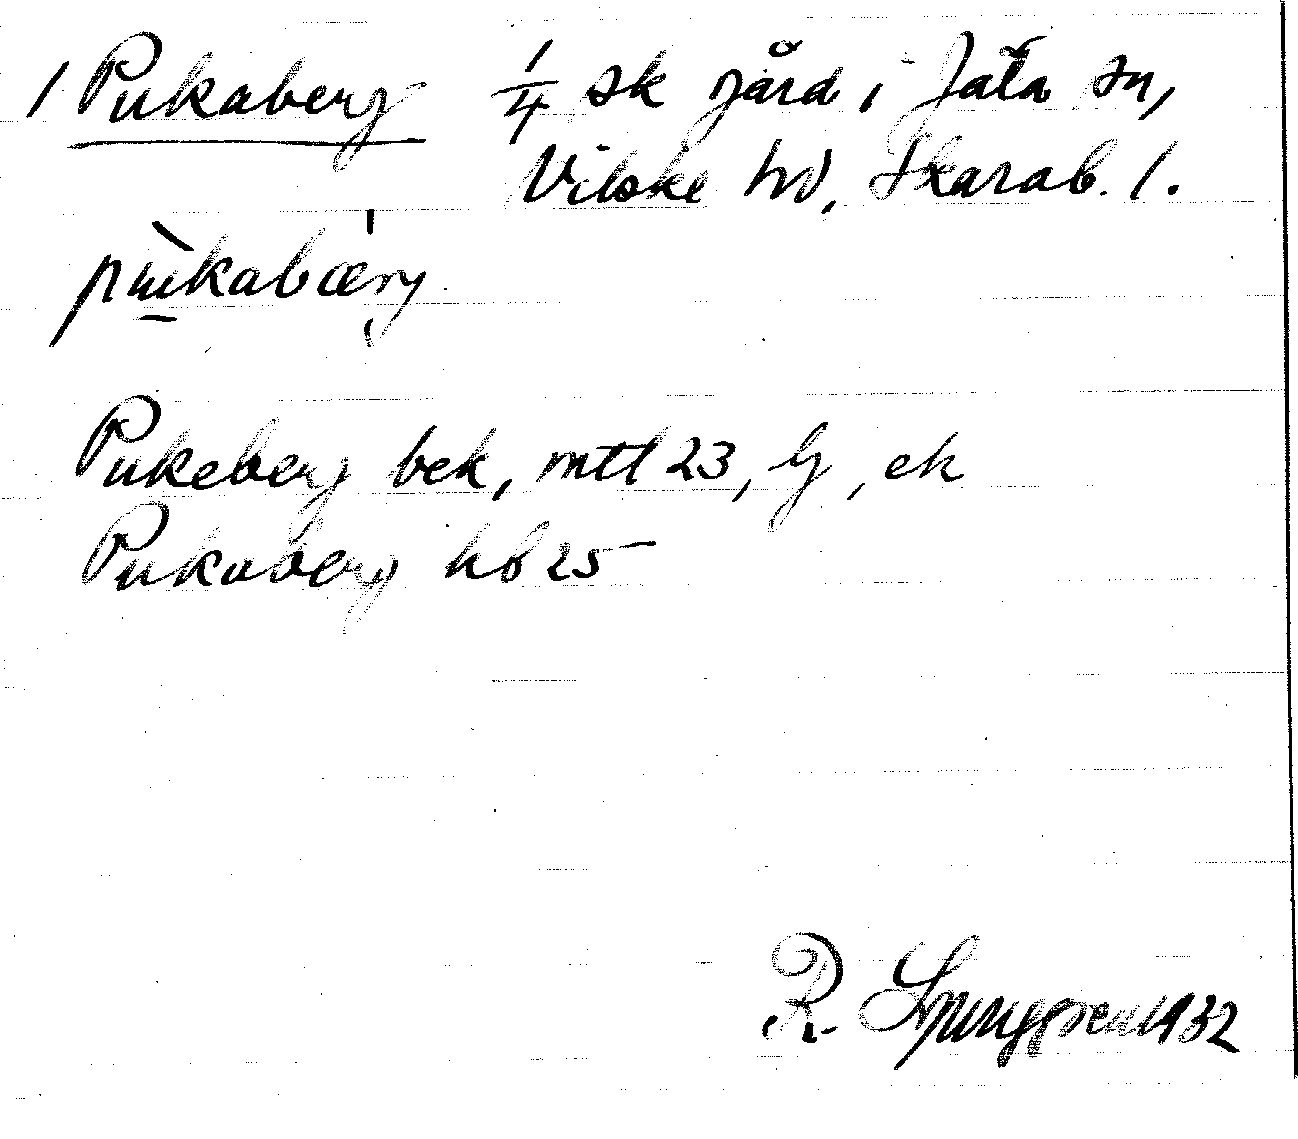 1 Pukaberg 1/4 sk gård i Jäla sn,
Vilske hd, Skarab. l.
pukabærg
Pukeberg bek, mtl 23, lj, ek
Pukaberg hb 25
R. Ljunggren 1932